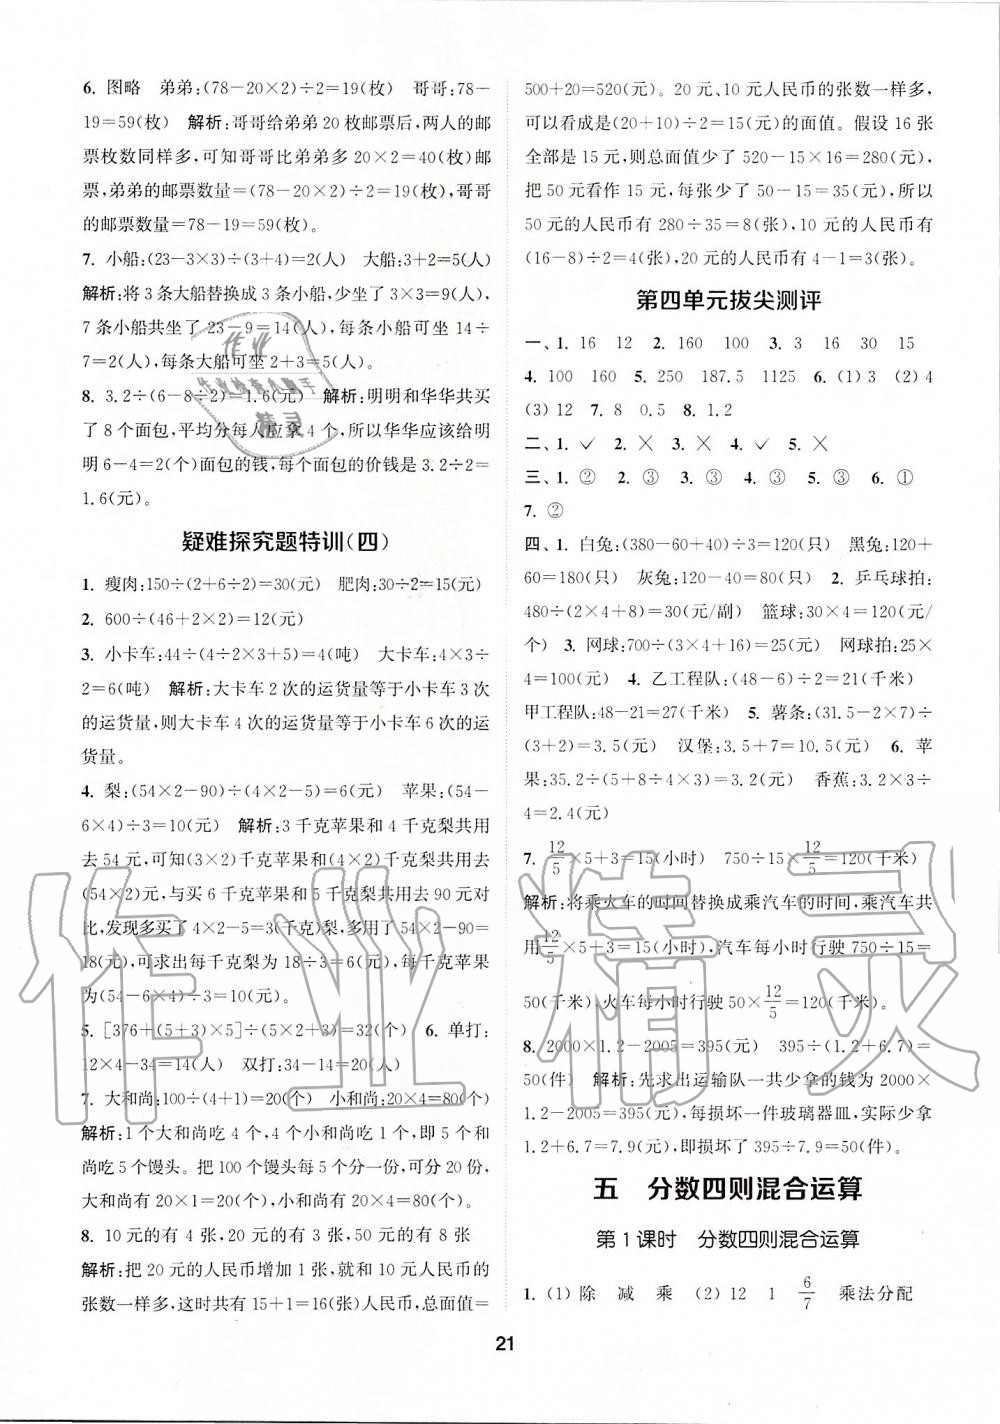 6. 图略　弟弟:(78-20×2)÷2=19(枚)　哥哥:78-
19=59(枚)　解析:哥哥给弟弟20枚邮票后,两人的邮
票枚数同样多,可知哥哥比弟弟多20×2=40(枚)邮
票,弟弟的邮票数量=(78-20×2)÷2=19(枚),哥哥
的邮票数量=78-19=59(枚)。
7. 小船:(23-3×3)÷(3+4)=2(人)　大船:3+2=5(人)
解析:将3条大船替换成3条小船,少坐了3×3=9(人),
7条小船共坐了23-9=14(人),每条小船可坐14÷
7=2(人),每条大船可坐2+3=5(人)。
8. 3.2÷(6-8÷2)=1.6(元)　解析:明明和华华共买
了8个面包,平均分每人应拿4个,所以华华应该给明
明6-4=2(个)面包的钱,每个面包的价钱是3.2÷2=
1.6(元)。
疑难探究题特训(四)
1. 瘦肉:150÷(2+6÷2)=30(元)　肥肉:30÷2=15(元)
2. 600÷(46+2×2)=12(元)
3. 小卡车:44÷(4÷2×3+5)=4(吨)　大卡车:4×3÷
2=6(吨)　解析:大卡车2次的运货量等于小卡车3次
的运货量,则大卡车4次的运货量等于小卡车6次的运
货量。
4. 梨:(54×2-90)÷(4×2-5)=6(元)　苹果:(54-
6×4)÷3=10(元)　解析:3千克苹果和4千克梨共用
去54元,可知(3×2)千克苹果和(4×2)千克梨共用去
(54×2)元,与买6千克苹果和5千克梨共用去90元对
比,发现多买了4×2-5=3(千克)梨,多用54×2-90=
18(元),可求出每千克梨为18÷3=6(元),每千克苹果
为(54-6×4)÷3=10(元)。
5. [376+(5+3)×5]÷(5×2+3)=32(个)　6. 单打:
12×4-34=14(人)　双打:34-14=20(人)
7. 大和尚:100÷(4+1)=20(个)　小和尚:20×4=80(个)
解析:1个大和尚吃4个,4个小和尚吃1个,即5个和
尚吃5个馒头。把100个馒头每5个分一份,可分20份,
大和尚有20×1=20(个),小和尚有20×4=80(个)。
8. 10元的有4张,20元的有3张,50元的有8张
解析:把20元的人民币增加1张,就和10元人民币的
张数一样多,这时共有15+1=16(张)人民币,总面值=
500+20=520(元)。20元、10元人民币的张数一样多,
可以看成是(20+10)÷2=15(元)的面值。假设16张
全部是15元,则总面值少了520-15×16=280(元),
把50元看作15元,每张少了50-15=35(元),所以
50元的人民币有280÷35=8(张),10元的人民币有
(16-8)÷2=4(张),20元的人民币有4-1=3(张)。
第四单元拔尖测评
一、1. 16　12　2. 160　100　3. 3　16　30　15
4. 100　160　5. 250　187.5　1125　6. (1) 3　(2) 4
(3) 12　7. 8　0.5　8. 1.2
二、1. ✓　2. ×　3. ×　4. ✓　5. ×
三、1. ②　2. ③　3. ③　4. ③　5. ③　6. ①
7. ②
四、1. 白兔:(380-60+40)÷3=120(只)　黑兔:120+
60=180(只)　灰兔:120-40=80(只)　2. 乒乓球拍:
480÷(2×4+8)=30(元/副)　篮球:30×4=120(元/
个)　3. 网球:700÷(3×4+16)=25(元)　网球拍:25×
4=100(元)　4. 乙工程队:(48-6)÷2=21(千米)
甲工程队:48-21=27(千米)　5. 薯条:(31.5-2×7)÷
(3+2)=3.5(元)　汉堡:3.5+7=10.5(元)　6. 苹
果:35.2÷(5+8÷4×3)=3.2(元)　香蕉:3.2×3÷
4=2.4(元)
7. 12/5×5+3=15(小时)　750÷15×12/5=120(千米)
解析:将乘火车的时间替换成乘汽车的时间,乘汽车共
用12/5×5+3=15(小时),汽车每小时行驶750÷15=
50(千米),火车每小时行驶50×12/5=120(千米)。
8. 2000×1.2-2005=395(元)　395÷(1.2+6.7)=
50(件)　解析:先求出运输队一共少拿的钱为2000×
1.2-2005=395(元),每损坏一件玻璃器皿,实际少拿
1.2+6.7=7.9(元),即损坏了395÷7.9=50(件)。
五　分数四则混合运算
第1课时　分数四则混合运算
1. (1) 除　减　乘　(2) 12　1　6/7　乘法分配
21
作业
作业检查小助手
精灵
作业精灵